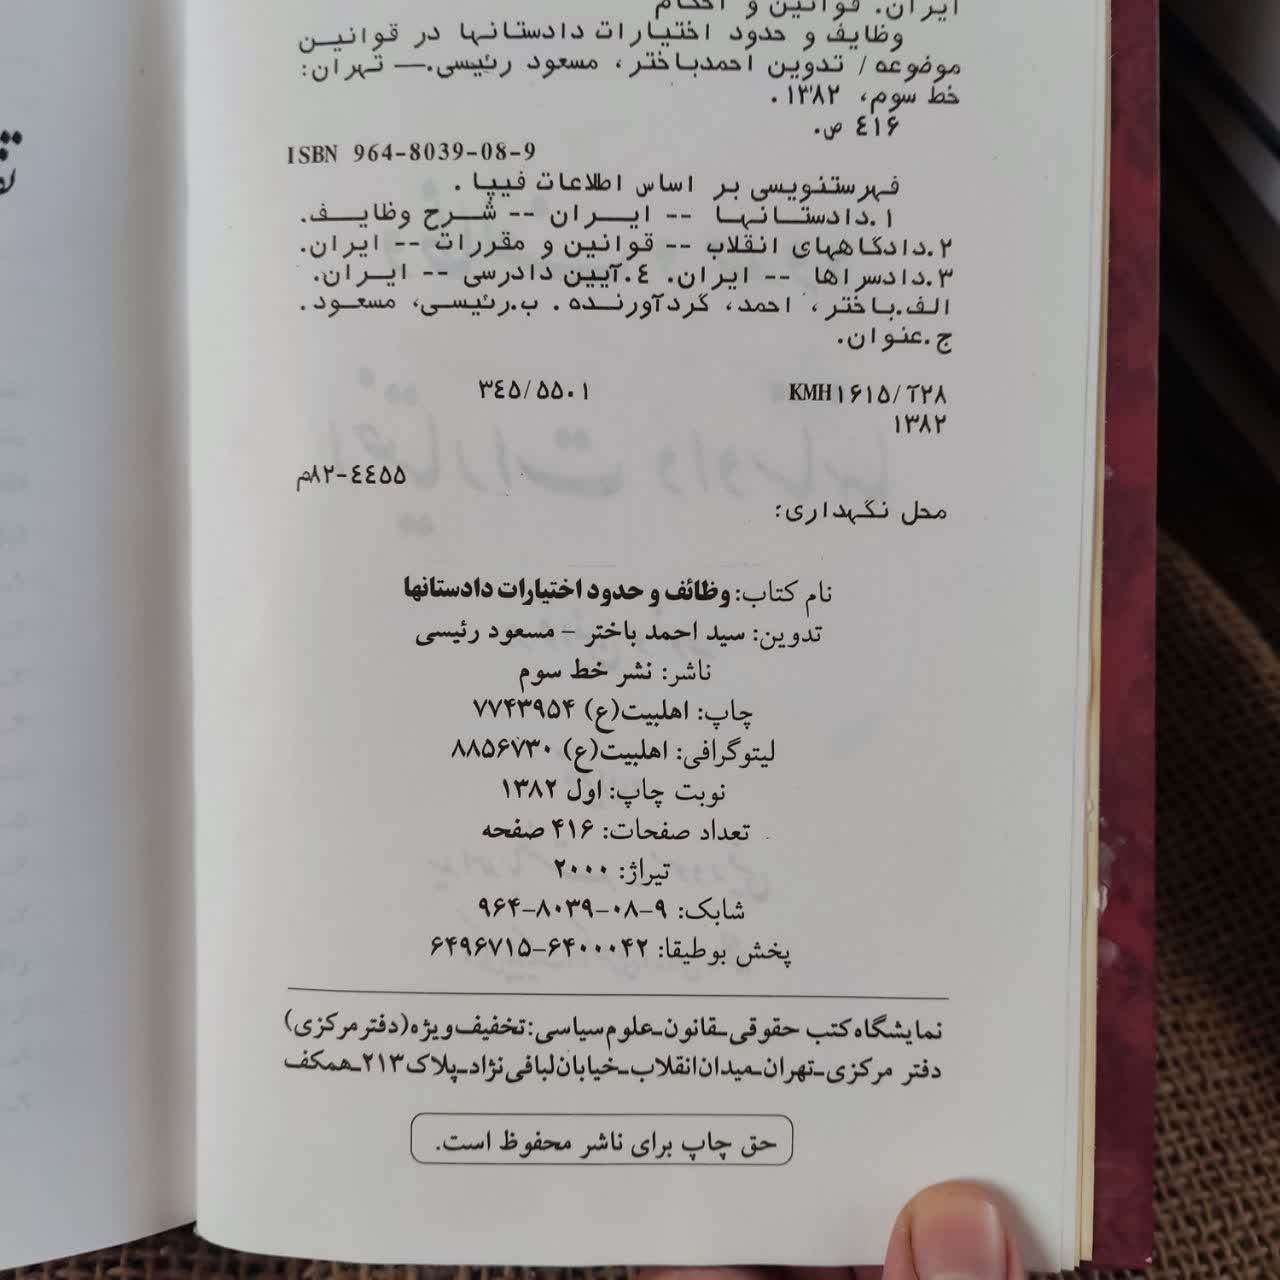 ایران. قوانین و احکام
وظایف و حدود اختیارات دادستانها در قوانین
موضوعه / تدوین احمدباختر، مسعود رئیسی.— تهران:
خط سوم، ۱۳۸۲.
۴۱۶ ص.
ISBN 964-8039-08-9
فهرستنویسی بر اساس اطلاعات فیپا.
۱.دادستانها -- ایران -- شرح وظایف.
۲.دادگاههای انقلاب -- قوانین و مقررات -- ایران.
۳.دادسراها -- ایران. ۴.آیین دادرسی -- ایران.
الف.باختر، احمد، گردآورنده. ب.رئیسی، مسعود.
ج.عنوان.
۳۴۵/۵۵۰۱ KMH۱۶۱۵/آ۲۸
۱۳۸۲
۸۲-۴۴۵۵م
محل نگهداری:
نام کتاب: وظائف و حدود اختیارات دادستانها
تدوین: سید احمد باختر – مسعود رئیسی
ناشر: نشر خط سوم
چاپ: اهلبیت(ع) ۷۷۴۳۹۵۴
لیتوگرافی: اهلبیت(ع) ۸۸۵۶۷۳۰
نوبت چاپ: اول ۱۳۸۲
تعداد صفحات: ۴۱۶ صفحه
تیراژ: ۲۰۰۰
شابک: ۹-۰۸-۸۰۳۹-۹۶۴
پخش بوطیقا: ۶۴۰۰۰۴۲-۶۴۹۶۷۱۵
نمایشگاه کتب حقوقی-قانون-علوم سیاسی: تخفیف ویژه (دفتر مرکزی)
دفتر مرکزی-تهران-میدان انقلاب-خیابان لبافی نژاد-پلاک ۲۱۳-همکف
حق چاپ برای ناشر محفوظ است.